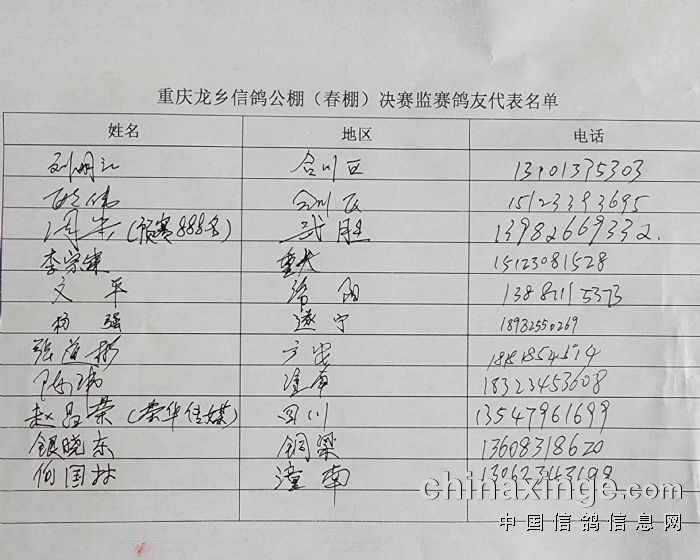 重庆龙乡信鸽公棚（春棚）决赛监赛鸽友代表名单
姓名 地区 电话
刘明江 合川区 13101375303
伟 合川区 15123393695
周 (预赛888名) 武胜 13982669332.
李宗 重大 15123081528
文平 阳
杨强 遂宁 18932550269
张 广安
陈 18323453608
赵昌荣(荣华传媒) 四川 13547961699
银晓东 铜梁 13608318620
何国林 潼南
chinaxinge.com
中国信鸽信息网